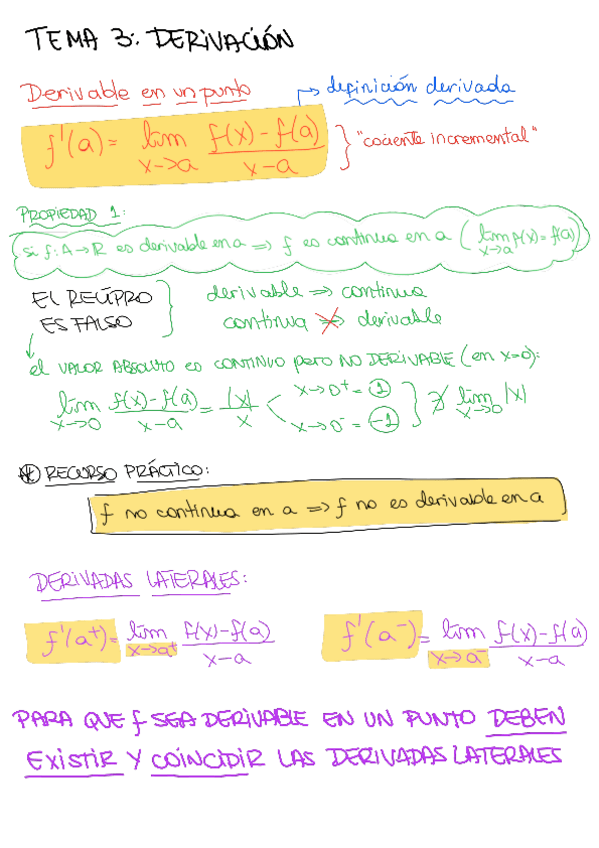 TEMA 3: DERIVACIÓN
Derivable en un punto → definición derivada
f'(a) = lim x→a (f(x) - f(a))/(x - a) } "cociente incremental"
PROPIEDAD 1:
si f: A → ℝ es derivable en a ⇒ f es continua en a (lim x→a f(x) = f(a))
EL RECÍPRO
ES FALSO
derivable ⇒ continua
continua ⇏ derivable
el VALOR ABSOLUTO es CONTINUO pero NO DERIVABLE (en x=0):
lim x→0 (f(x) - f(a))/(x - a) = |x|/x < x→0⁺ = 1
x→0⁻ = -1 } ∄ lim x→0 |x|
* RECURSO PRÁCTICO:
f no continua en a ⇒ f no es derivable en a
DERIVADAS LATERALES:
f'(a⁺) = lim x→a⁺ (f(x) - f(a))/(x - a)
f'(a⁻) = lim x→a⁻ (f(x) - f(a))/(x - a)
PARA QUE f SEA DERIVABLE EN UN PUNTO DEBEN
EXISTIR Y COINCIDIR LAS DERIVADAS LATERALES